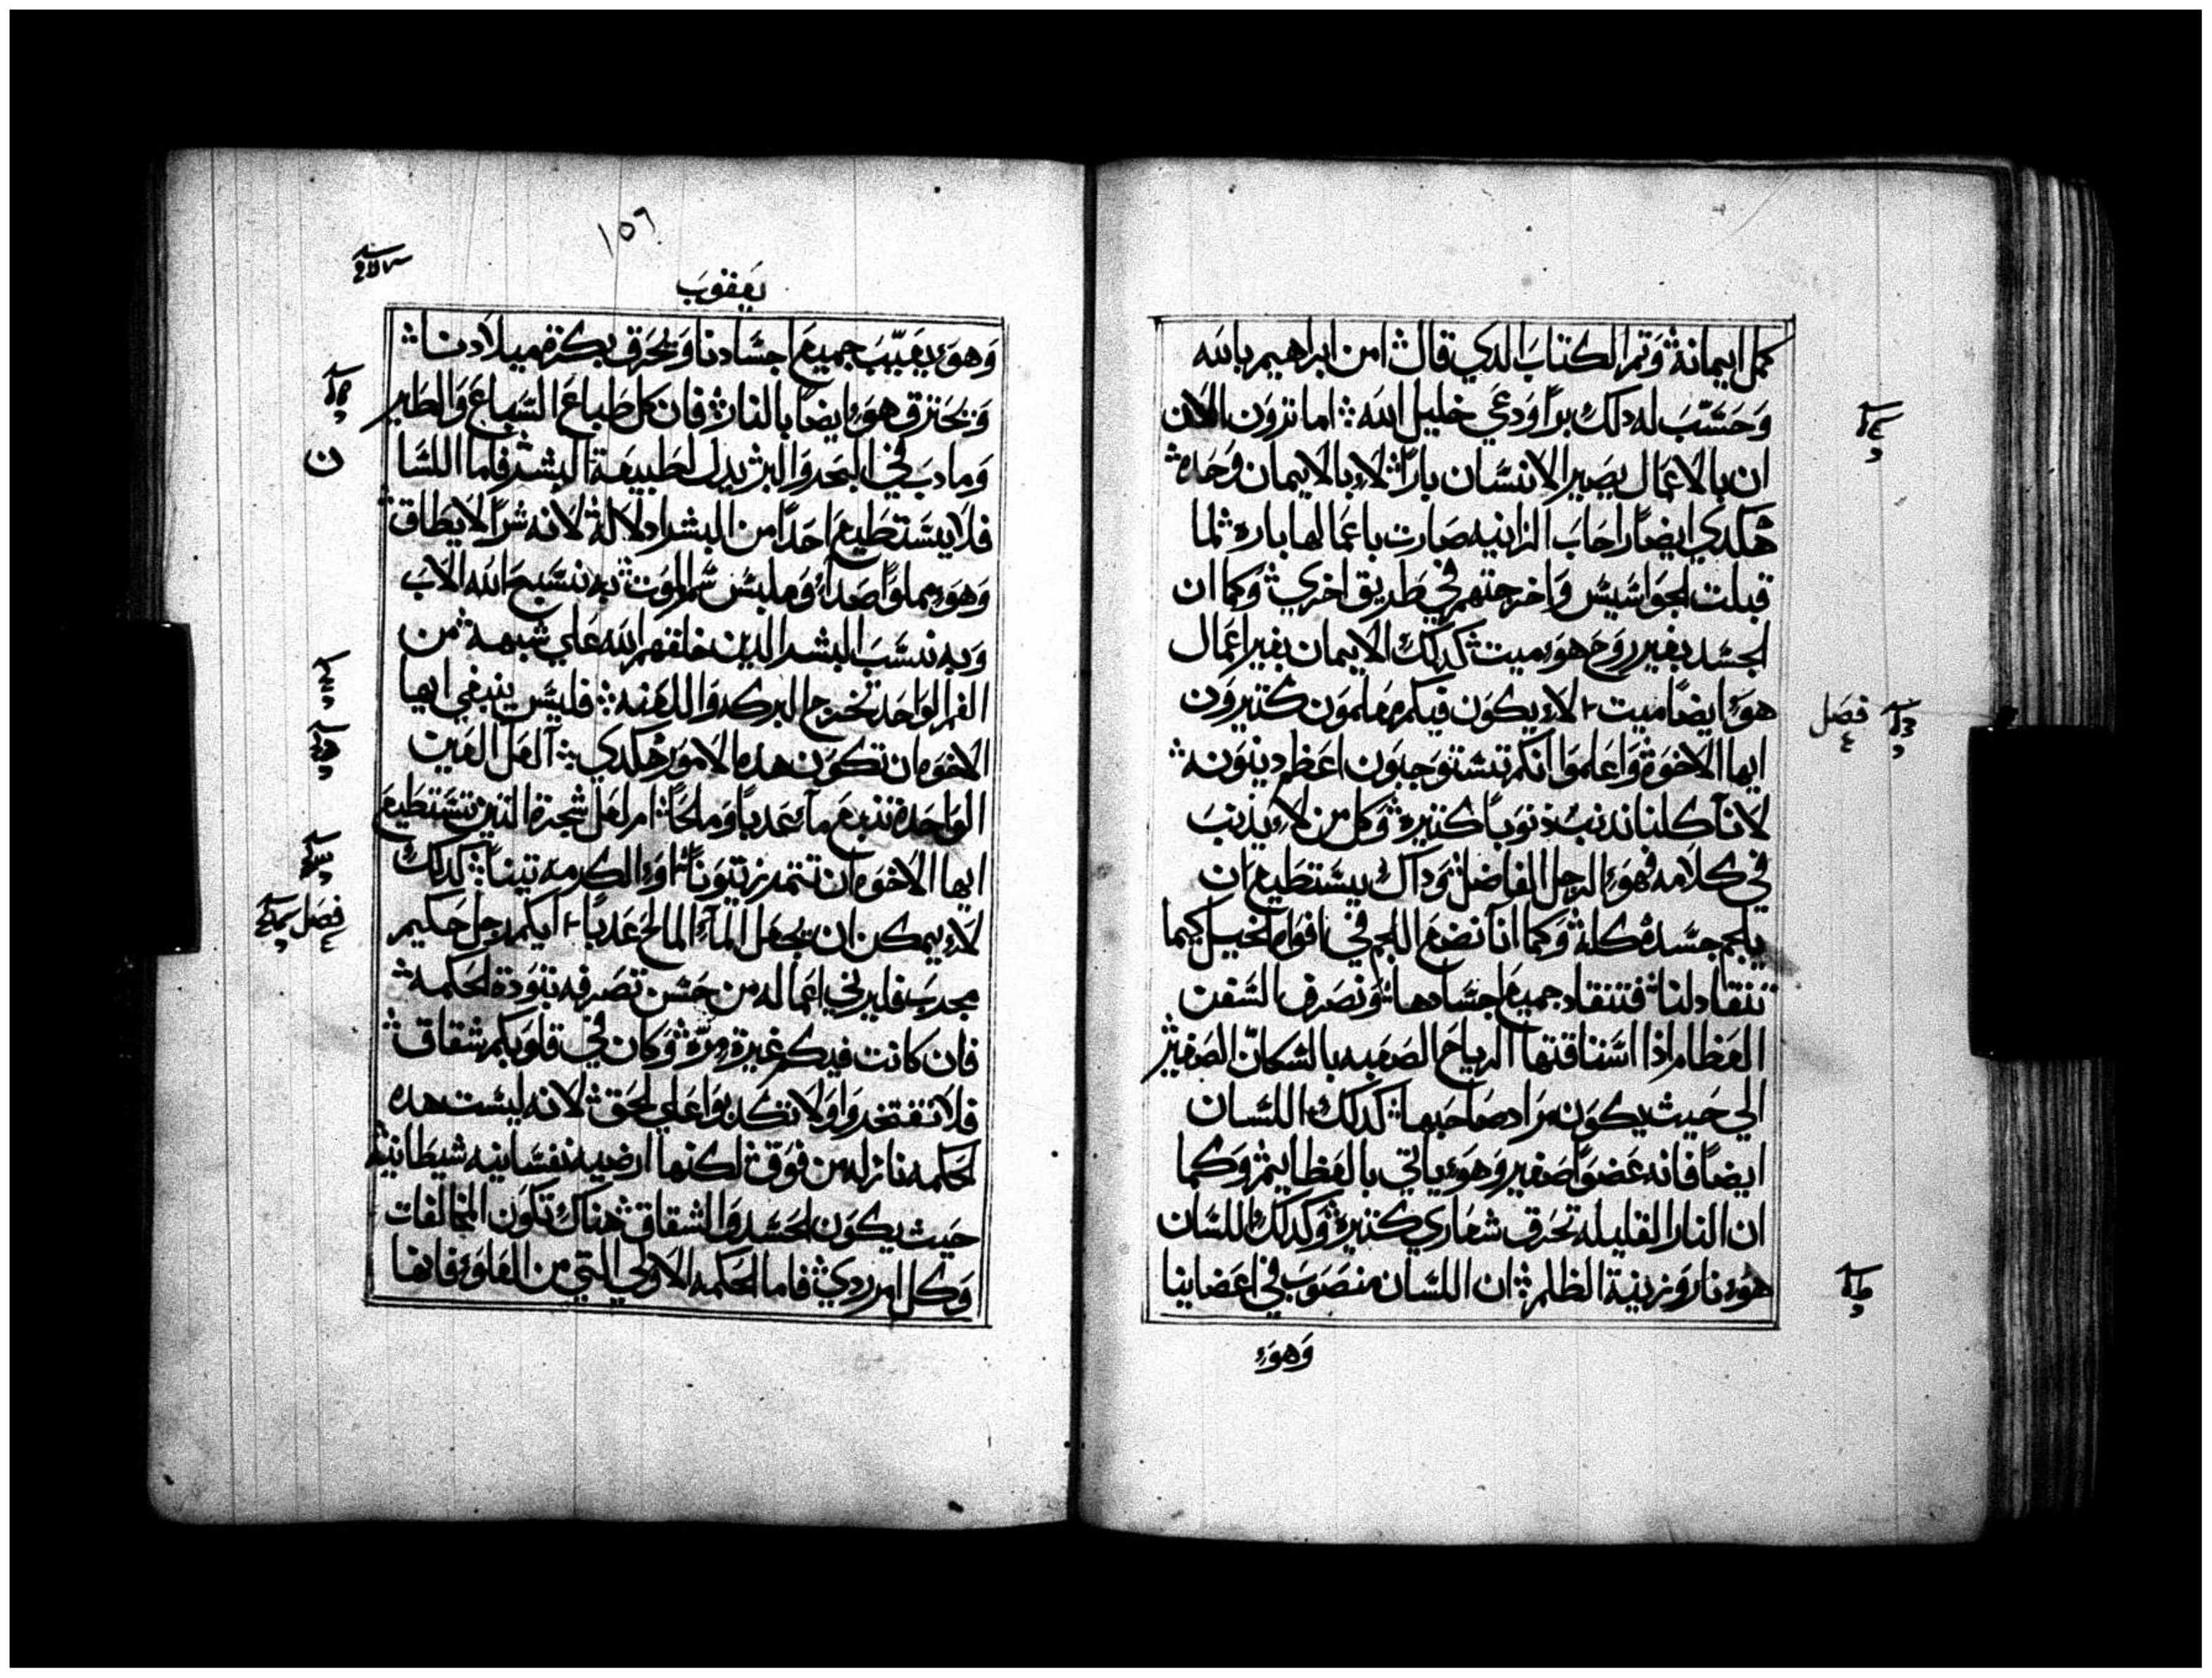 كمل ايمانه وتم الكتاب الدي قال امن ابراهيم بالله
وحسب له دلك برا ودعي خليل الله اما ترون الان
ان بالاعمال يصير الانسان بارا لا بالايمان وحده
هكدي ايضا راحاب الزانيه صارت باعمالها باره لما
قبلت الجواسيس واخرجتهم في طريق اخري وكما ان
الجسد بغير روح هوء ميت كدلك الايمان بغير اعمال
هوء ايضا ميت لاء يكون فيكم معلمون كثيرون
فصل
ايها الاخوة واعلموا انكم تستوجبون اعظم دينونه
لانا كلنا ندنب ذنوبا كثيره وكل من لاء يذنب
في كلامه فهوء الرجل الفاضل وداك يستطيع ان
يلجم جسده كله وكما انا نضع اللجم في افواه الخيل كيما
تنقاد لنا فتنقاد جميع اجسادها ونصرف السفن
العظام اذا استاقتها الرياح الصعبه بالسكان الصغير
الي حيث يكون مراد صاحبها كدلك اللسان
ايضا فانه عضوا صغير وهوء ياتي بالعظايم وكما
ان النار القليله تحرق شعاري كثيره وكدلك اللسان
هوء نار وزينة الظلم ان اللسان منصوب في اعضاينا
وهوء
١٥٦
يعقوب
وهوء يعيب جميع اجسادنا ويحرق بكرة ميلادنا
ويحترق هوء ايضا بالنار فان كل طباع السباع والطير
وما دب في البحر والبر يدل لطبيعة البشر فاما اللسا
ن
فلا يستطيع احدا من البشر ادلاله لانه شرا لا يطاق
وهوء مملوا صداء وملبس سم الموت به نسبح الله الاب
وبه نسب البشر الدين خلقهم الله علي شبهه من
الفم الواحد تخرج البركه واللعنه فليس ينبغي ايها
الاخوه ان تكون هده الامور هكدي العل العين
الواحده تنبع ماء عدبا ومالحا ام لعل شجرة التين تستطيع
ايها الاخوه ان تتمر زيتونا اوء الكرمه تينا كدلك
لاء يمكن ان يجعل الماء المالح عدبا ايكم رجل حكيم
فصل
مجرب فلير ني اعماله من حسن تصرفه بتودة الحكمه
فان كانت فيكم غيرة مره وكان في قلوبكم شقاق
فلا تفتخروا ولا تكدبوا علي الحق لانه ليست هده
الحكمه نازله من فوق لكنها ارضيه نفسانيه شيطانيه
حيث يكون الحسد والشقاق هناك تكون المخالفات
وكل امر ردي فاما الحكمه الاولي التي من العلوء فانها